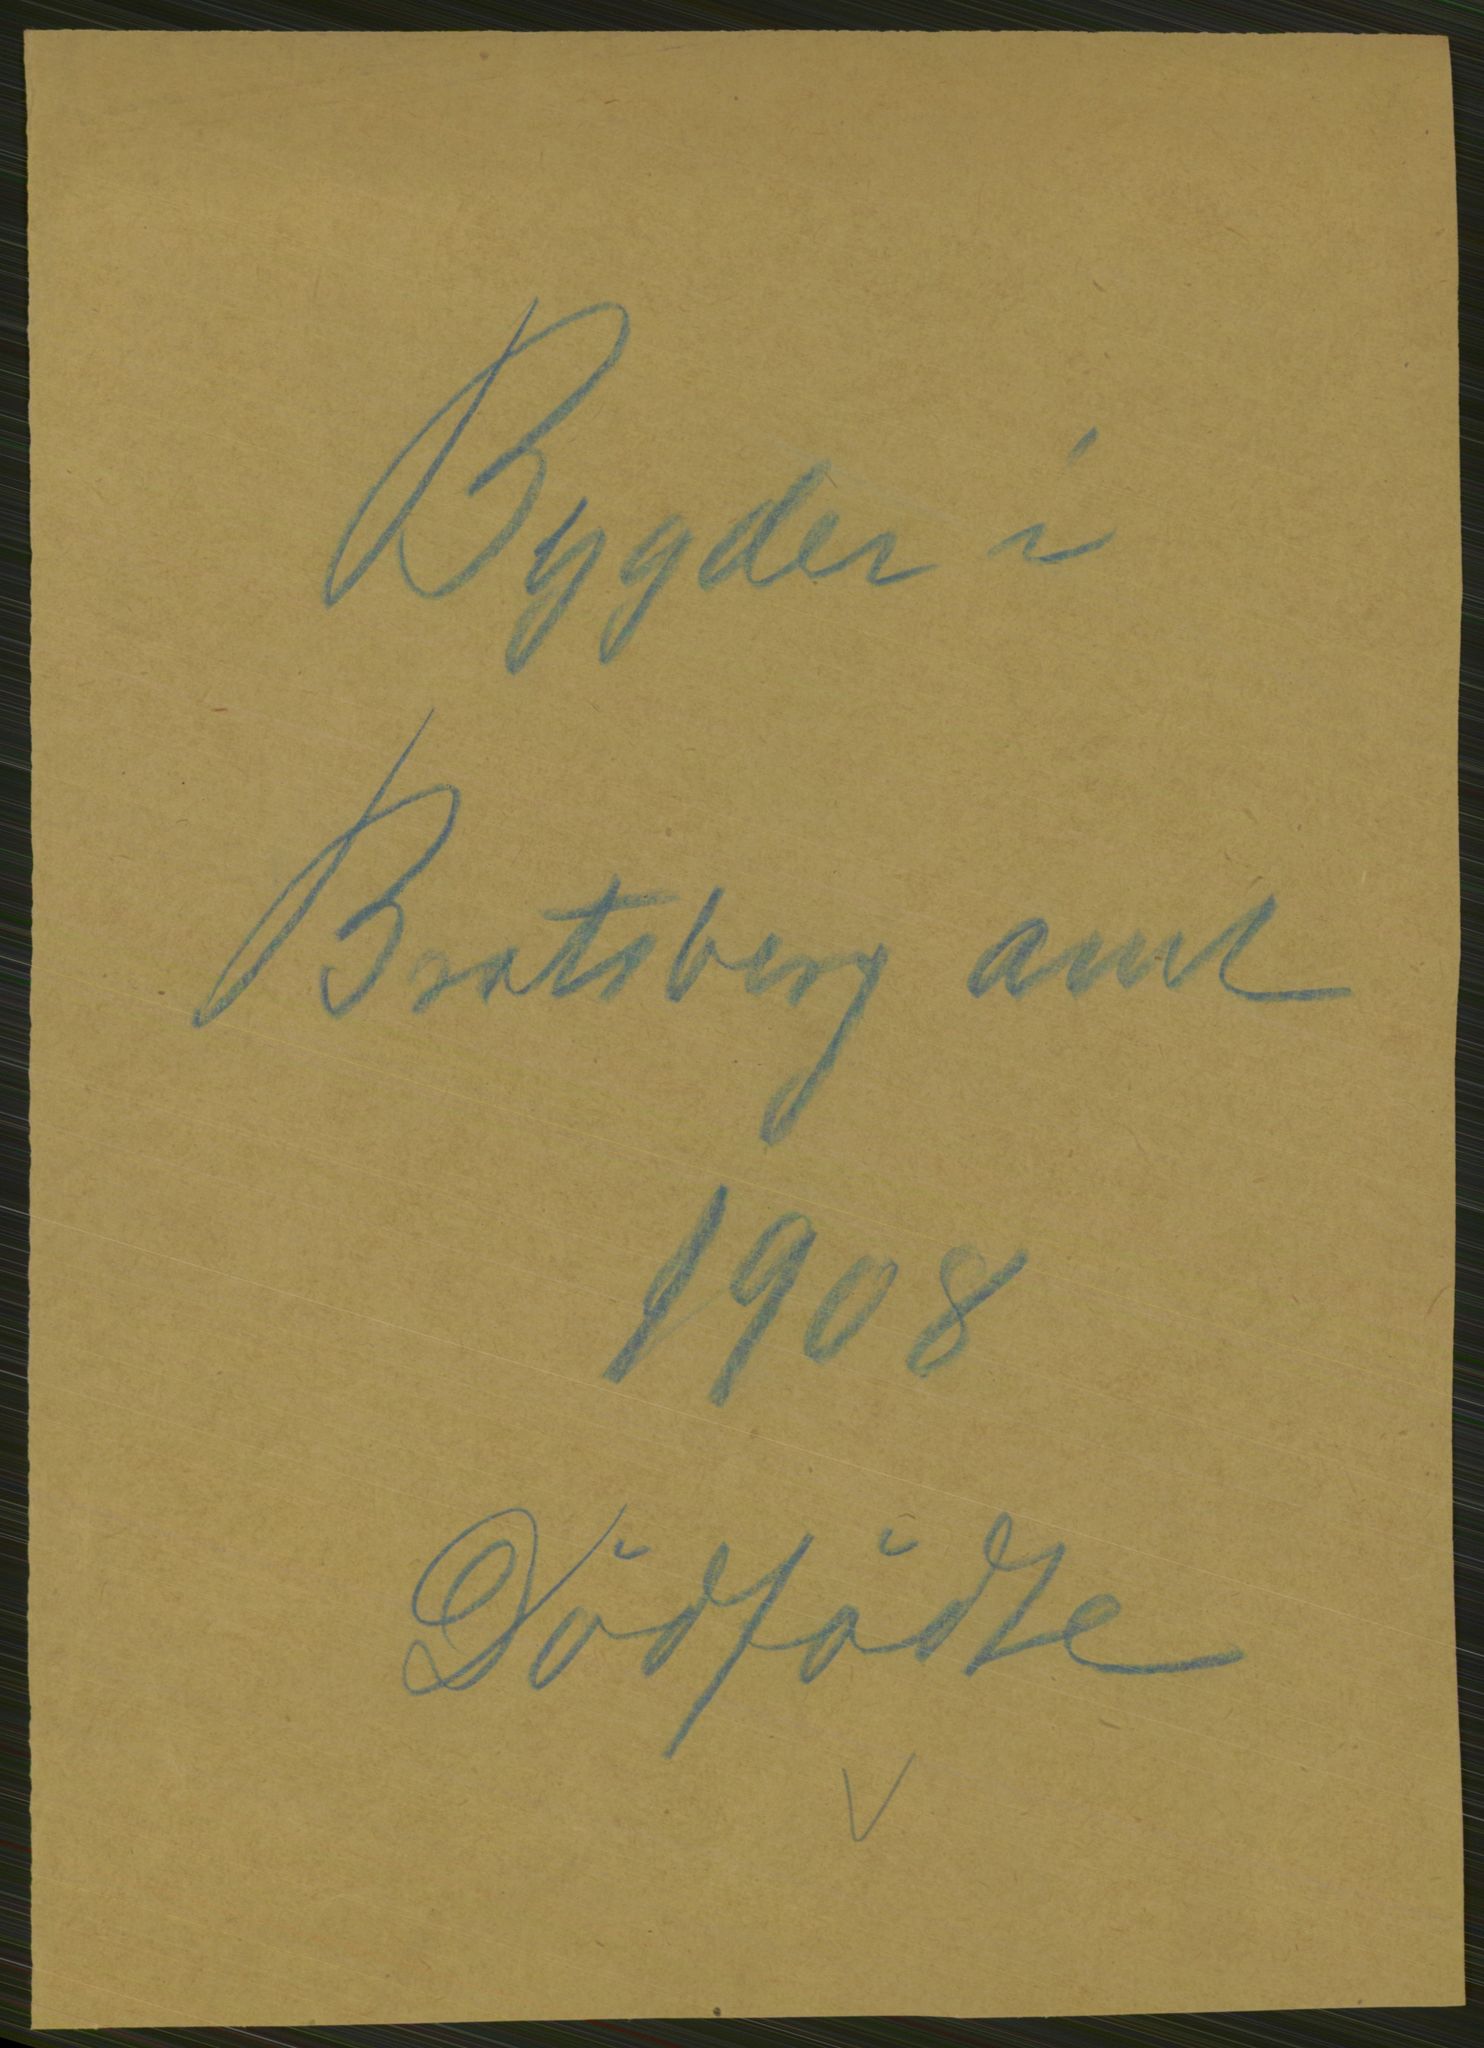 Bygder i
Bratsberg amt
1908
Dödfödte
V